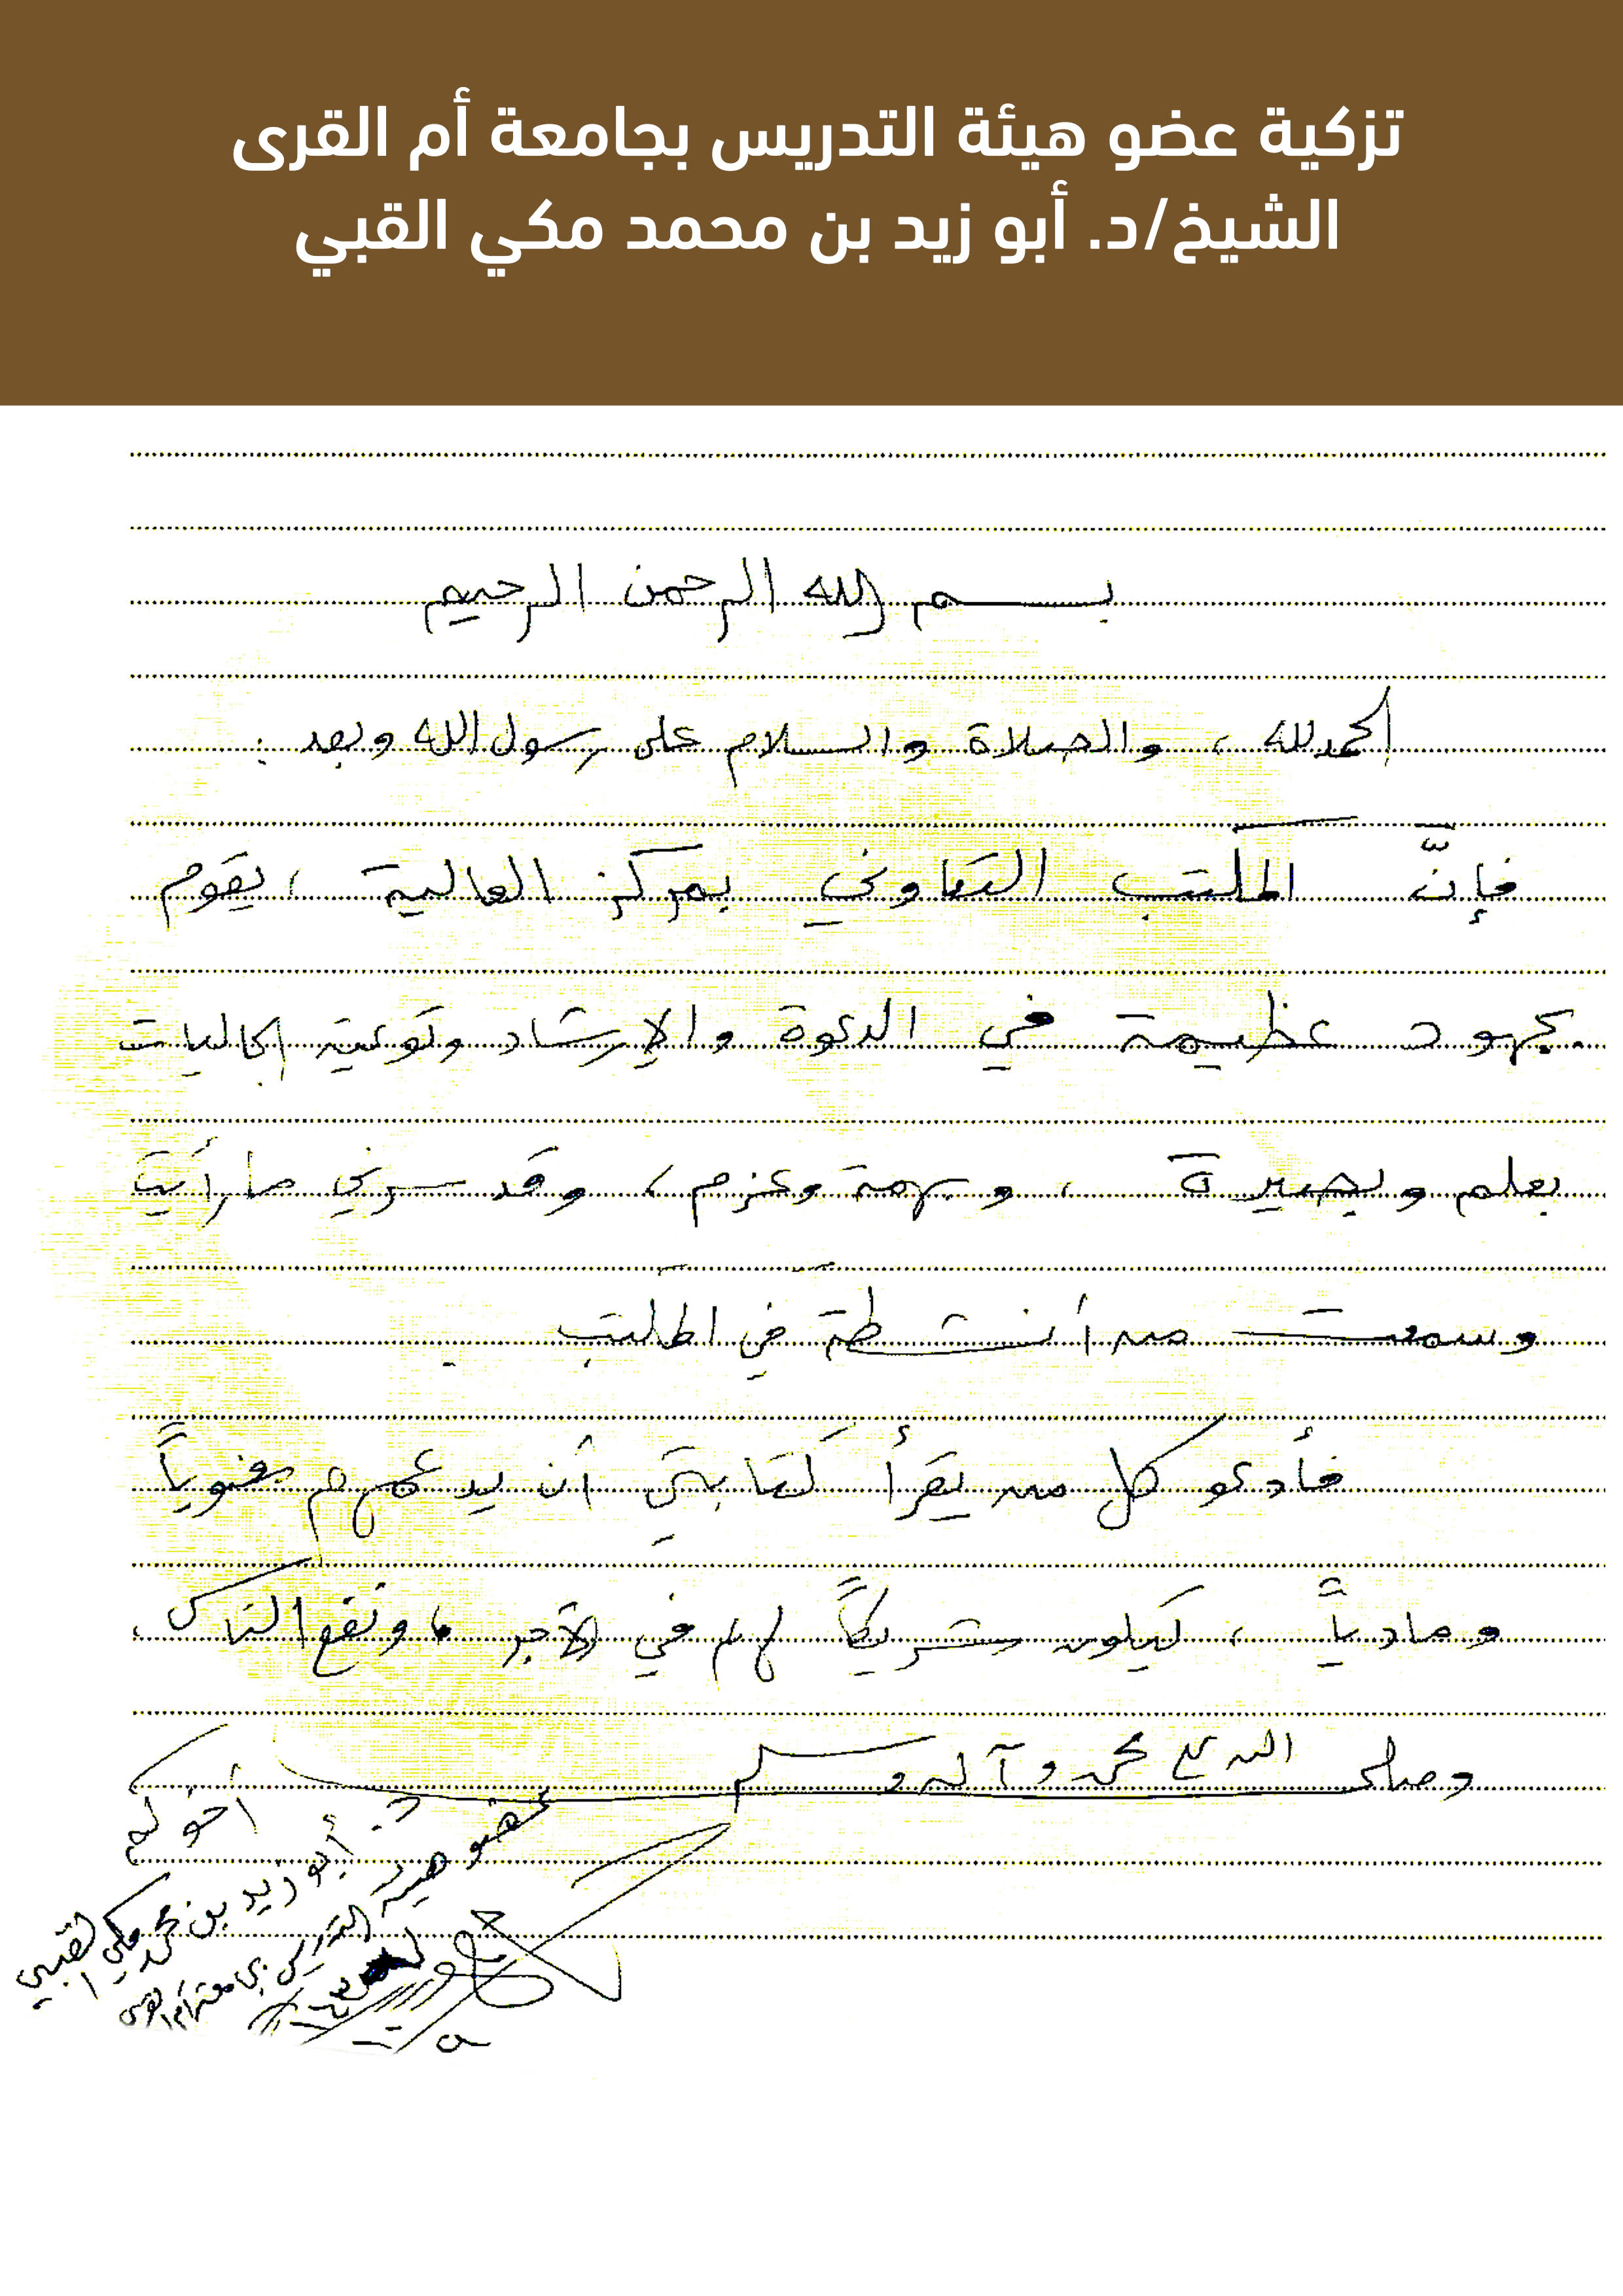 تزكية عضو هيئة التدريس بجامعة أم القرى
الشيخ/د. أبو زيد بن محمد مكي القبي
بسم الله الرحمن الرحيم
الحمد لله ، والصلاة والسلام على رسول الله وبعد :
فإنّ المكتب التعاوني بمركز العالية ، يقوم
بجهود عظيمة في الدعوة والإرشاد وتوعية الجاليات
بعلم وبصيرة ، وبهمة وعزم ، وقد سرني ما رأيت
وسمعت من أنشطة في المكتب .
فأدعو كل من يقرأ كتابتي أن يدعمهم معنوياً
ومادياً ، ليكون شريكاً لهم في الأجر ، ونفع الناس .
وصلى الله على محمد وآله وسلم
أخوكم
د. أبو زيد بن محمد مكي القبي
عضو هيئة التدريس بجامعة أم القرى